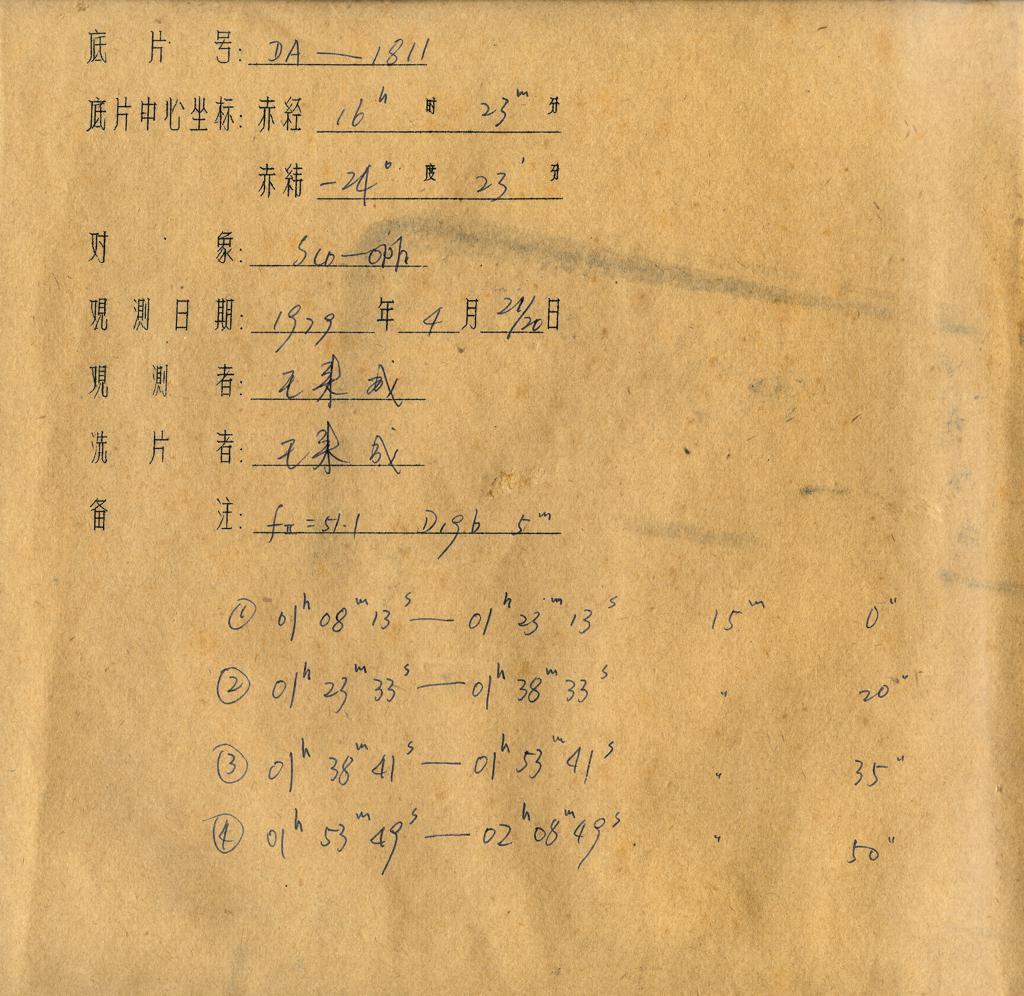 底片号: DA — 1811
底片中心坐标: 赤经 16ʰ 时 23ᵐ 分
赤纬 -24° 度 23′ 分
对象: Sco-Oph
观测日期: 1979 年 4 月 21/20 日
观测者: 王 成
洗片者: 王 成
备注: fⅡ=51.1 5ᵐ
① 01ʰ 08ᵐ 13ˢ — 01ʰ 23ᵐ 13ˢ 15ᵐ 0"
② 01ʰ 23ᵐ 33ˢ — 01ʰ 38ᵐ 33ˢ " 20"
③ 01ʰ 38ᵐ 41ˢ — 01ʰ 53ᵐ 41ˢ " 35"
④ 01ʰ 53ᵐ 49ˢ — 02ʰ 08ᵐ 49ˢ " 50"